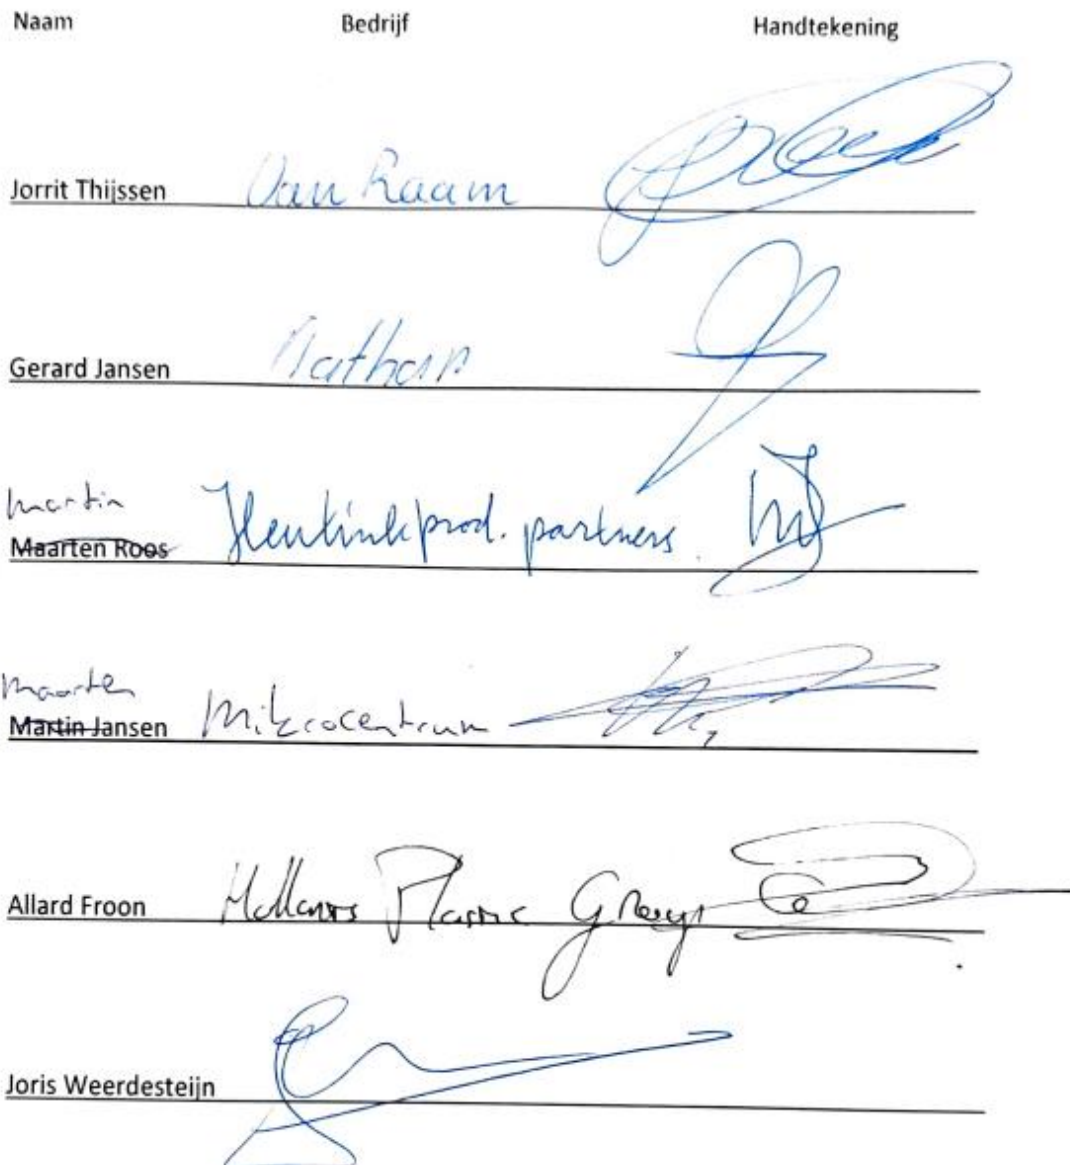 Naam Bedrijf Handtekening
Jorrit Thijssen Van Raam
Gerard Jansen Nathan
Martin
Maarten Roos Hentink prod. partners
Maarten
Martin Jansen Mikrocentrum
Allard Froon Hollands Plastic Group
Joris Weerdesteijn